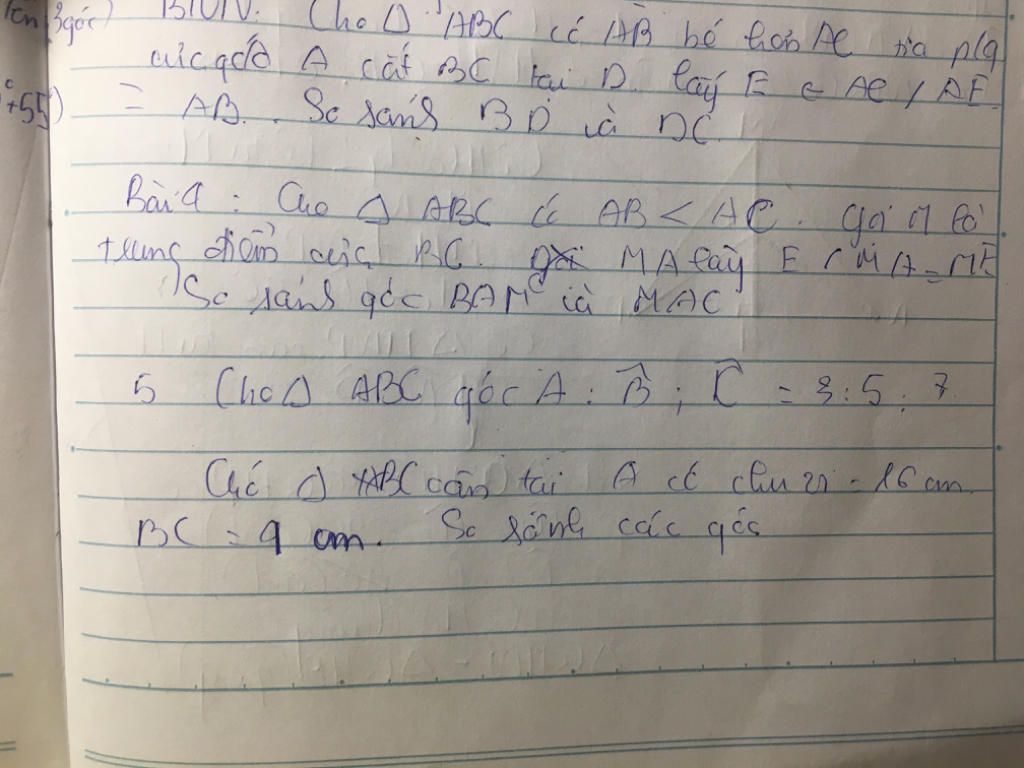 góc) BTVN: Cho Δ ABC có AB bé hơn AC tia p/g
của góc A cắt BC tại D. lấy E ∈ AC / AE
+55) = AB. So sánh BD và DC
Bài 4 : Cho Δ ABC có AB < AC. Gọi M là
trung điểm của BC. MA lấy E / MA = ME
So sánh góc BAM và MAC
5 Cho Δ ABC góc A : B ; C = 3 : 5 : 7
Chó Δ ABC cân tại A có chu vi = 16 cm.
BC = 4 cm. So sánh các góc